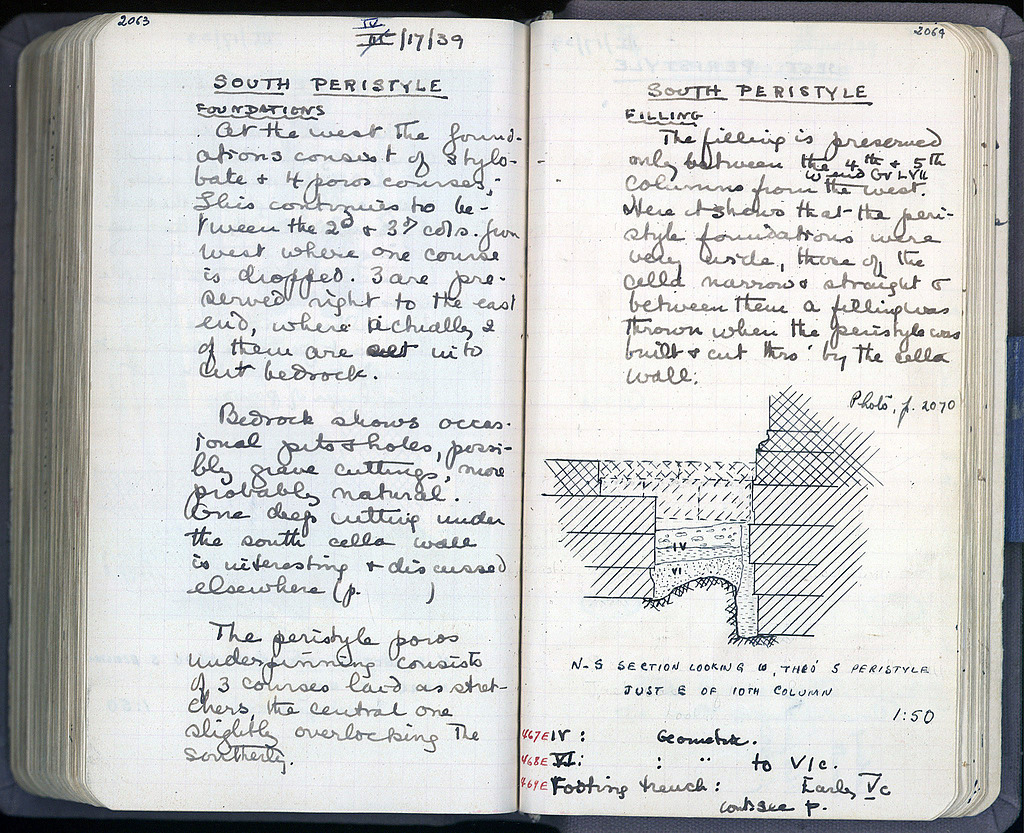 2063
IV
III/17/39
SOUTH PERISTYLE
FOUNDATIONS
At the west the found-
ations consist of stylo-
bate + 4 poros courses;
This continues to be-
tween the 2d + 3d cols. from
west where one course
is dropped. 3 are pre-
served right to the east
end, where actually 2
of them are set into
cut bedrock.
Bedrock shows occas-
ional pits + holes, possi-
bly grave cuttings, more
probably natural.
One deep cutting under
the south cella wall
is interesting + discussed
elsewhere (p.      )
The peristyle poros
underpinning consists
of 3 courses laid as stret-
chers, the central one
slightly overlocking the
southerly.
2064
SOUTH PERISTYLE
FILLING
The filling is preserved
only between the 4th + 5th
W end
columns from the west.
Here it shows that the peri-
style foundations were
very wide, those of the
cella narrow + straight +
between them a filling was
thrown when the peristyle was
built + cut thro' by the cella
wall.
Photo, p. 2070
IV
VI
N-S SECTION LOOKING W, THRO' S PERISTYLE
JUST E OF 10TH COLUMN
1:50
467E IV : Geometric.
468E VI : : " to VI c.
469E Footing trench : Early V c
see p.